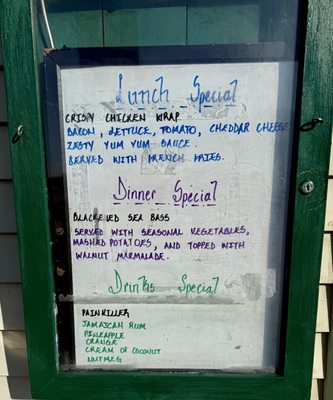 Lunch Special
CRISPY CHICKEN WRAP
BACON, LETTUCE, TOMATO, CHEDDAR CHEESE
ZESTY YUM YUM SAUCE.
SERVED WITH FRENCH FRIES.
Dinner Special
BLACKENED SEA BASS
SERVED WITH SEASONAL VEGETABLES,
MASHED POTATOES, AND TOPPED WITH
WALNUT MARMALADE.
Drinks Special
PAINKILLER
JAMAICAN RUM
PINEAPPLE
ORANGE
CREAM OF COCONUT
NUTMEG